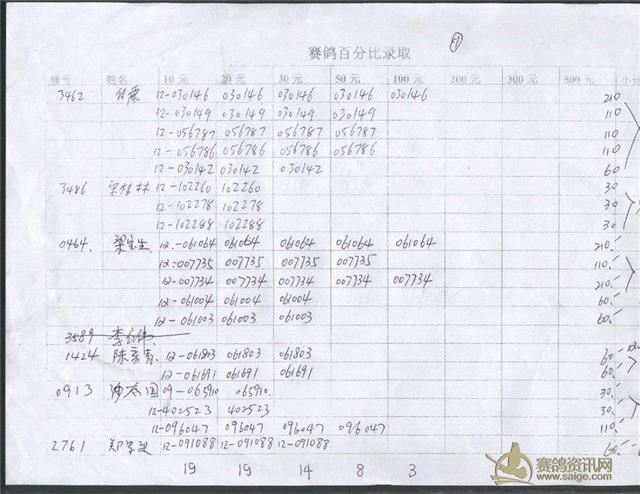 ①
赛鸽百分比录取
棚号 姓名 10元 20元 30元 50元 100元 200元 300元 500元 小计
3462 12-030146 030146 030146 030146 030146 210
12-030149 030149 030149 030149 110
12-056787 056787 056787 056787 110
12-056786 056786 056786 056786 110
12-030142 030142 030142 60
3486 宋桂林 12-102260 102260 30
12-102278 102278 30
12-102288 102288 30
0464. 梁宝生 12-061064 061064 061064 061064 061064 210.
12-007735 007735 007735 007735 110.
12-007734 007734 007734 007734 007734 210.
12-061004 061004 061004 60.
12-061003 061003 061003 60.
3589 李
1424 陈 12-061803 061803 061803 60.
12-061691 061691 061691 60.
0913 太国 09-065910 065910. 30.
12-402523 402523 30.
12-096047 096047 096047 096047 110.
2761 郑 12-091088 12-091088 12-091088 60.
19 19 14 8 3
赛鸽资讯网
www.saige.com